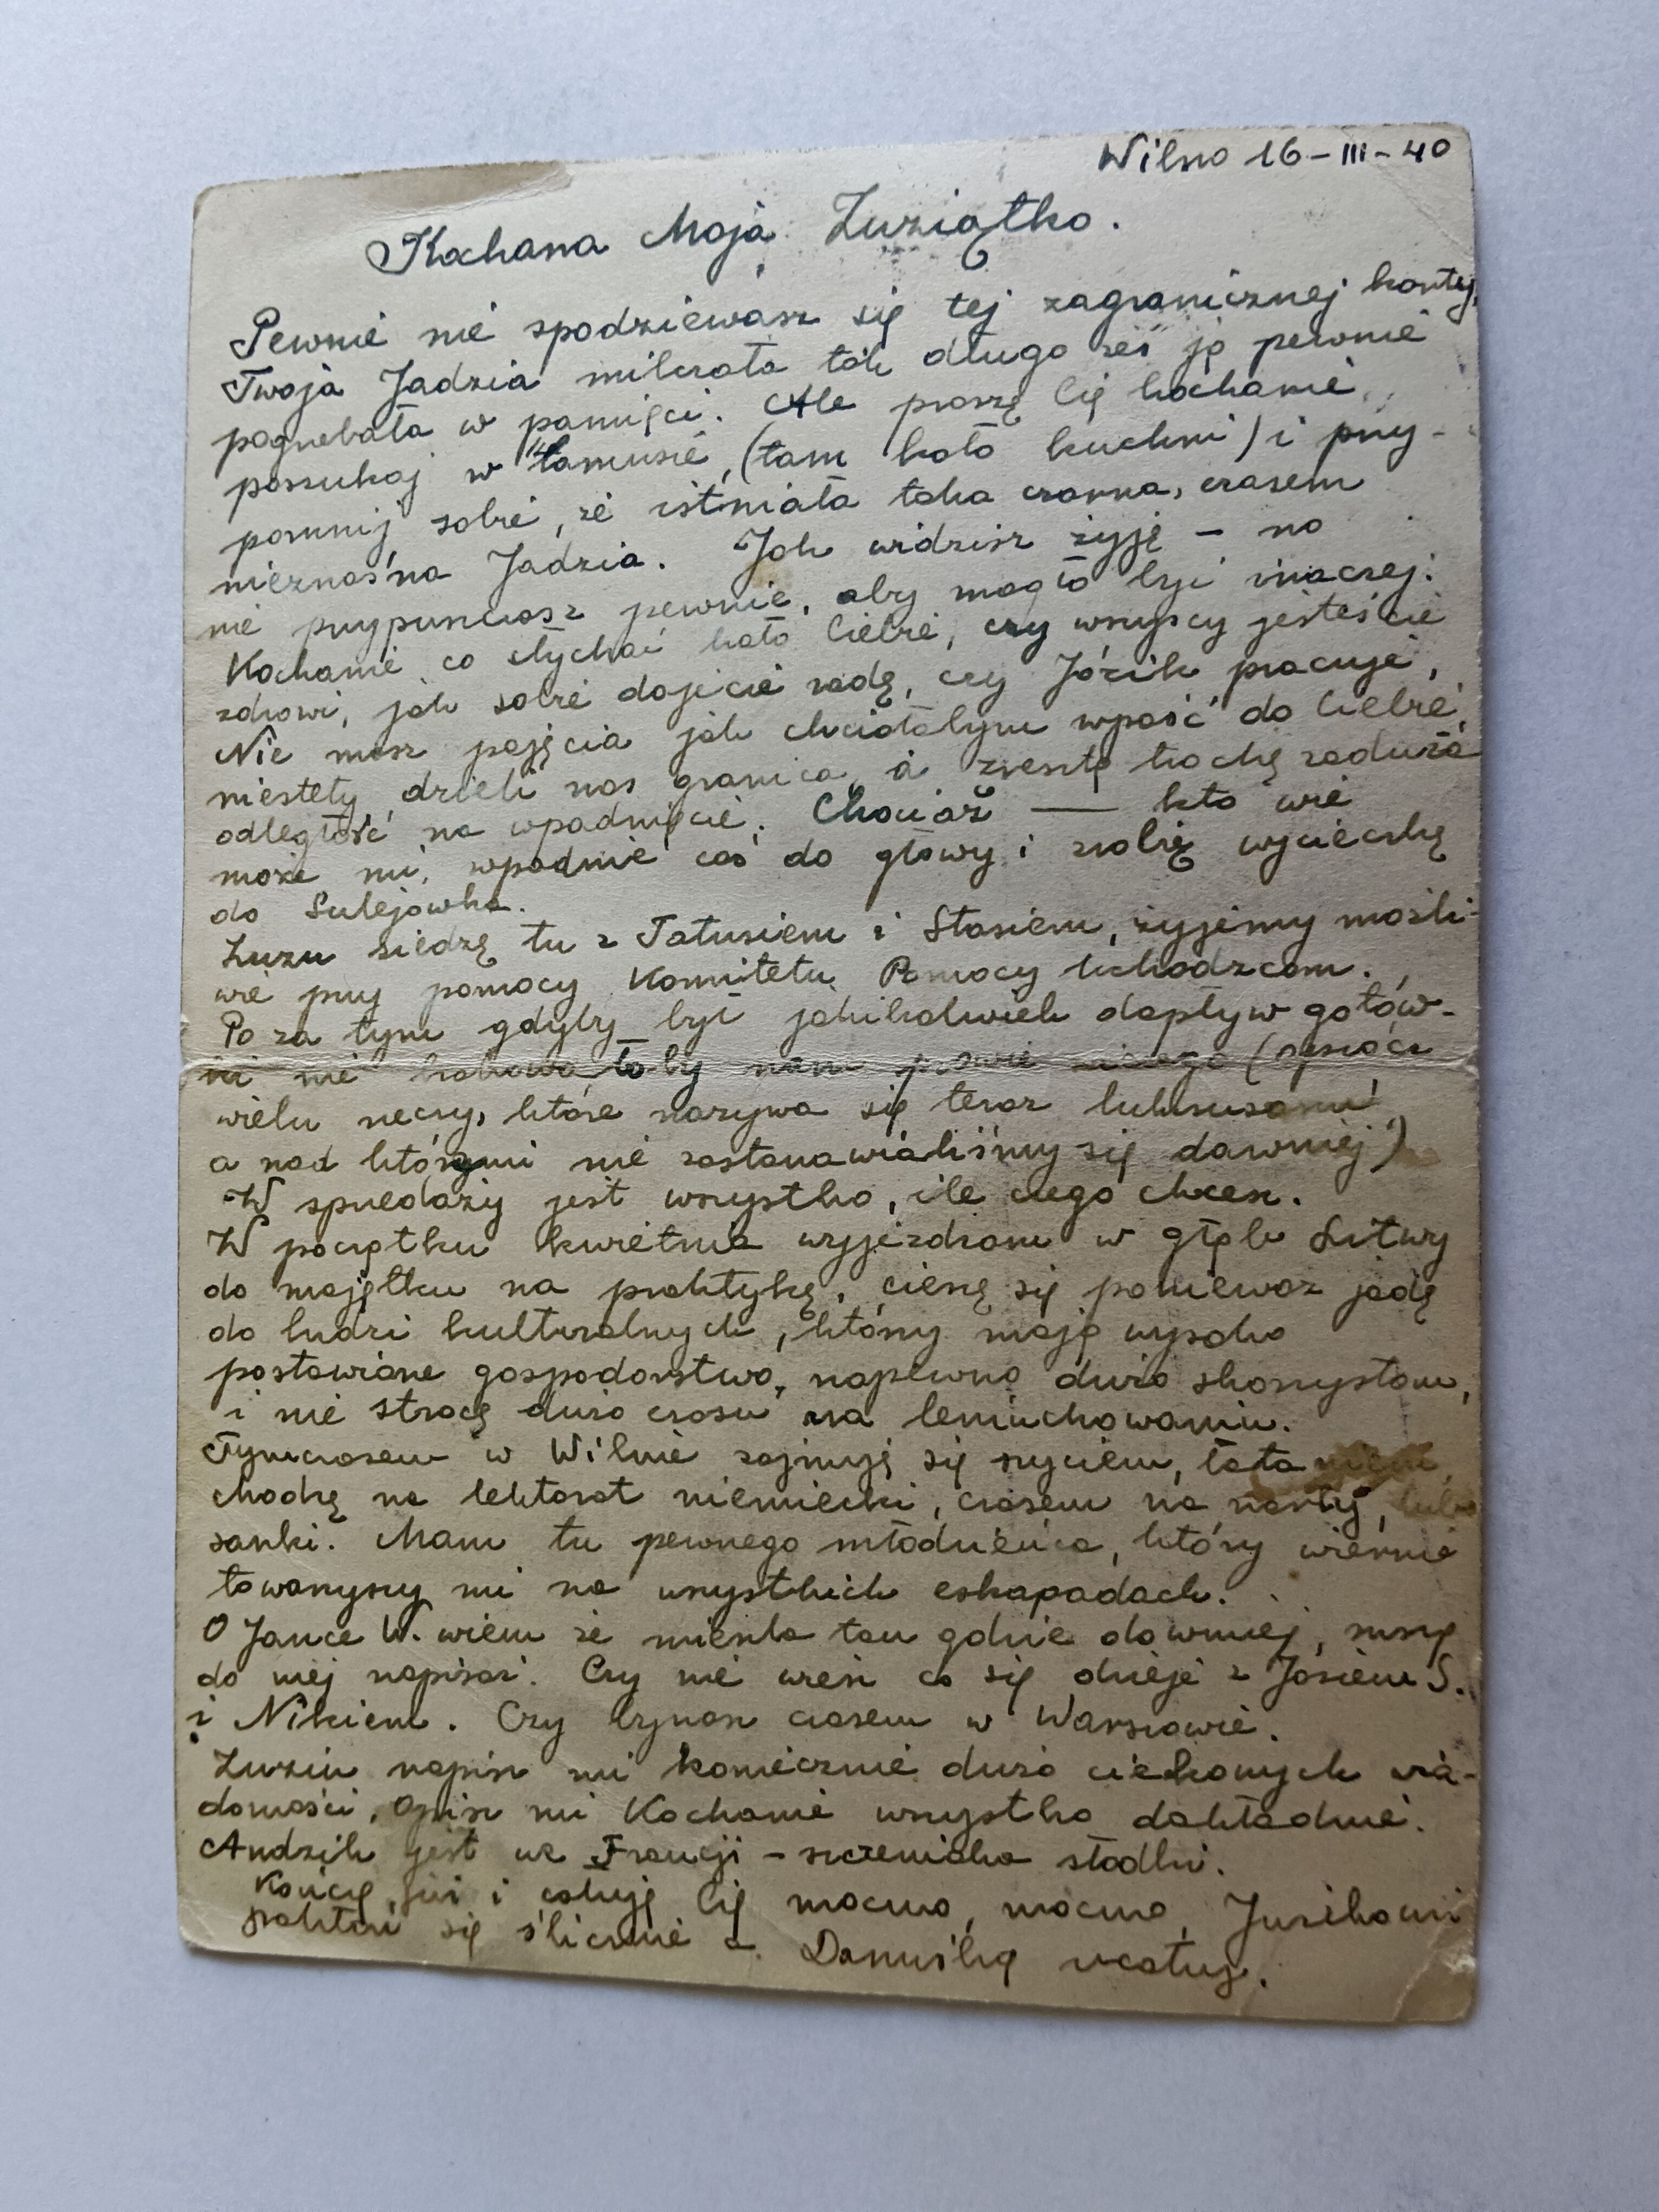 Wilno 16-III-40
Kochana Moja Zuziątko.
Pewnie nie spodziewasz się tej zagranicznej karty,
Twoja Jadzia milczała tak długo żeś ją pewnie
pogrzebała w pamięci. Ale proszę Cię kochanie,
poszukaj w "lamusie", (tam koło kuchni) i przy-
pomnij sobie, że istniała taka czarna, czasem
nieznośna Jadzia. Jak widzisz żyję – no
nie przypuszczasz pewnie, aby mogło być inaczej.
Kochanie co słychać koło Ciebie, czy wszyscy jesteście
zdrowi, jak sobie dajecie radę, czy Józik pracuje,
Nie masz pojęcia jak chciałabym wpaść do Ciebie,
niestety dzieli nas granica, a zresztą trochę zaduża
odległość na wpadnięcie. Chociaż — kto wie
może mi wpadnie coś do głowy i zrobię wycieczkę
do Sulejówka.
Zuzu siedzę tu z Tatusiem i Stasiem, żyjemy możli-
wie przy pomocy Komitetu Pomocy Uchodźcom.
Po za tym gdyby był jakikolwiek dopływ gotów-
ki nie brakowałoby nam prawie niczego (oprócz
wielu rzeczy, które nazywa się teraz luksusami
a nad którymi nie zastanawialiśmy się dawniej)
W sprzedaży jest wszystko, ile czego chcesz.
W początku kwietnia wyjeżdżam w głąb Litwy
do majątku na praktykę, cieszę się ponieważ jadę
do ludzi kulturalnych, którzy mają wysoko
postawione gospodarstwo, napewno dużo skorzystam,
i nie stracę dużo czasu na leniuchowaniu.
Tymczasem w Wilnie zajmuję się szyciem,
chodzę na lektorat niemiecki, czasem na narty, lub
sanki. Mam tu pewnego młodzieńca, który wiernie
towarzyszy mi na wszystkich eskapadach.
O Jance W. wiem że mieszka tam gdzie dawniej, muszę
do niej napisać. Czy nie wiesz co się dzieje z Józiem S.
i Nikiem. Czy bywasz czasem w Warszawie.
Zuziu napisz mi koniecznie dużo ciekawych wia-
domości, Opisz mi Kochanie wszystko dokładnie.
Andzik jest we Francji – szczeniaka słodki.
Kończę już i całuję Cię mocno, mocno, Juzikowi
pokłoń się ślicznie a Danuśkę ucałuj.